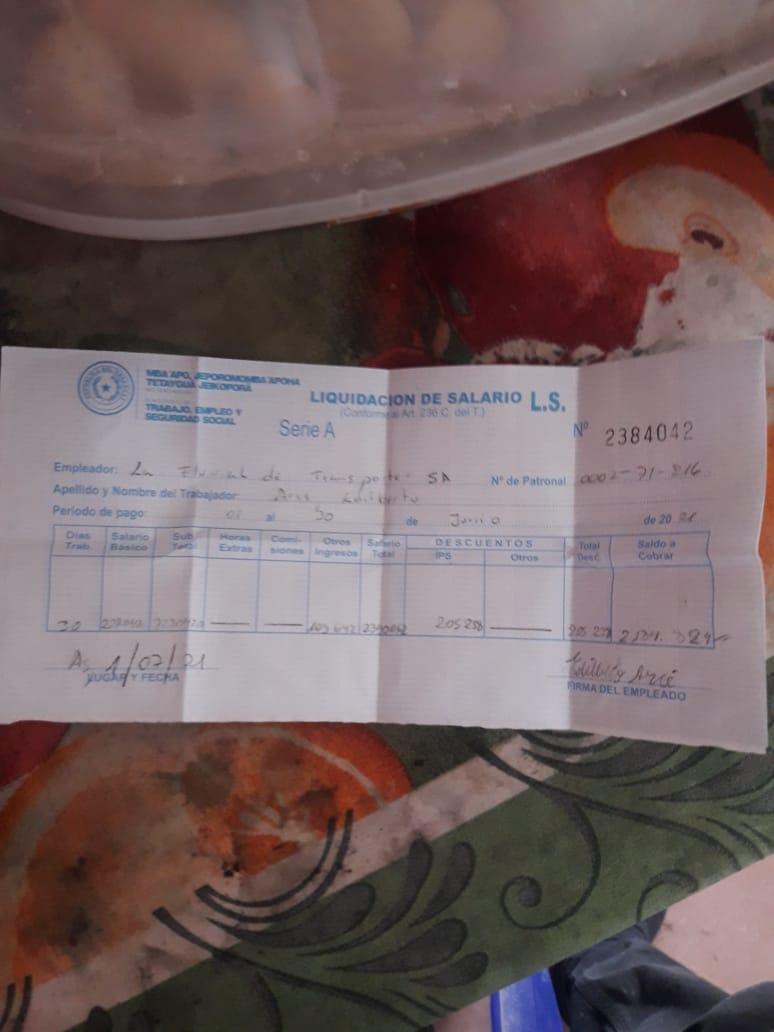 MBA'APO, JEPOROMOMBA'APOHA
TETAYGUA JEIKOPORÃ
TRABAJO, EMPLEO Y
SEGURIDAD SOCIAL
LIQUIDACION DE SALARIO L.S.
(Conforme al Art. 236 C. del T.)
Serie A
Nº 2384042
Empleador: La Fluvial de Transporte SA Nº de Patronal 0002-71-216
Apellido y Nombre del Trabajador: Arce
Periodo de pago: 01 al 30 de Junio de 2021
Dias Trab. Salario Básico Sub Total Horas Extras Comisiones Otros Ingresos Salario Total DESCUENTOS IPS Otros Total Desc. Saldo a Cobrar
30 109 642 205 258
As 1/07/21
LUGAR Y FECHA
Arce
FIRMA DEL EMPLEADO